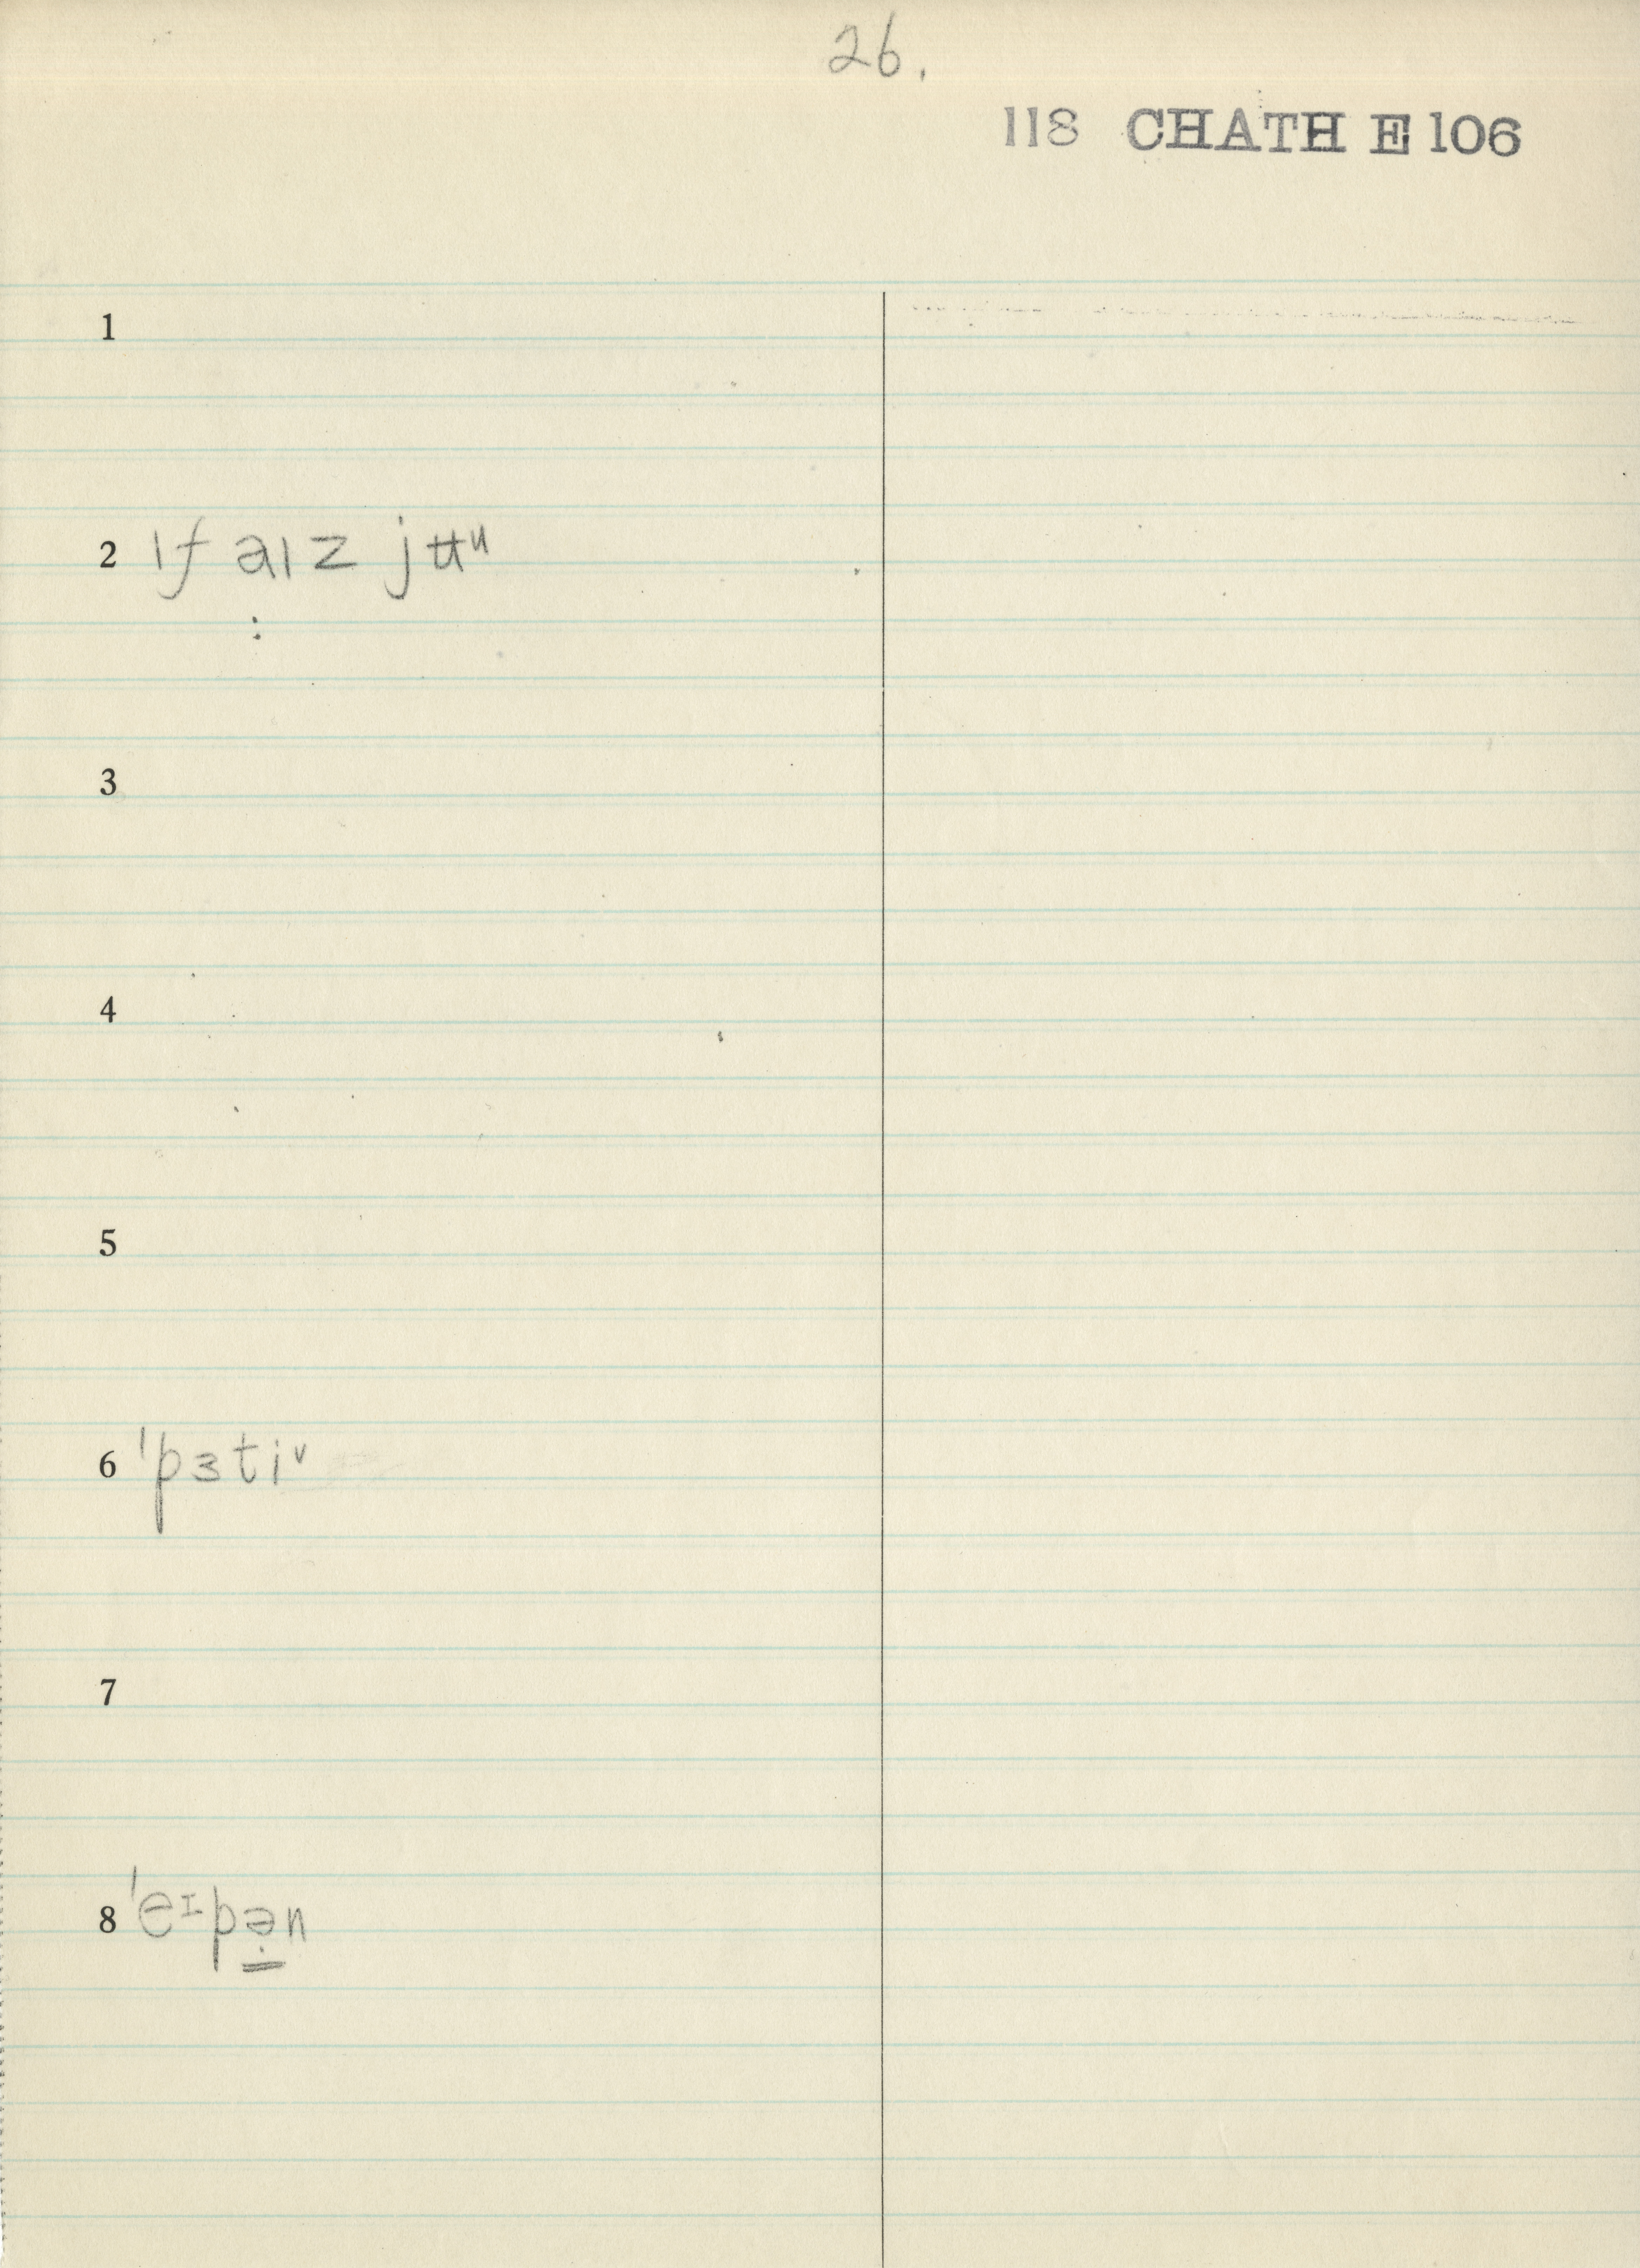 26.
118 CHATH E 106
1
2 ɪf aɪz jʉᶸ
:
3
4
5
6 ˈpɜtiᵛ
7
8 ˈeɪpə̱̇n